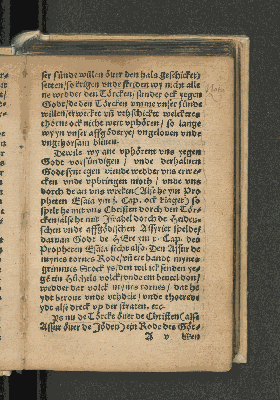 ser sünde willen över den hals geschicket)
setten / so krigen unde striden wy nicht alle
ne wedder den Törcken / sünder ock yegen
Gode / de den Törcken umme unser sünde
willen / erwecket un uthschicket welckeres
thorne ock nicht wert uphören / so lange
wy yn unser affgöderye / ungelouen unde
ungehorsam bliuen.
Dewile wy ane uphörent uns yegen
Godt vorsündigen / unde derhaluen
Godt synen egen unde wedder uns erwe-
cken unde upbringen moth / unde uns
dorch de an uns wreken (Alse he ym Pro-
pheten Esaia ym j. Cap. ock klaget) so
spelt he mit uns Christen dorch den Tör-
cken / alse he mit Israhel dorch de Heden-
schen unde affgödischen Assyrier spelde /
daruan Godt de HERE ym x. Cap. des
Propheten Esaia secht also. Den Assur de
mynes tornes Rode / un ere handt mynes
grimmes Stock ys / den wil ick senden ye-
gen ein Hüchels volck / unde em beuel don /
wedder dat volck mynes tornes / dat he
ydt beroue unde uthdele / unde thotrede
ydt alse dreck up der straten. etc.
Ys nu de Törcke över de Christen (alse
Assur över de Jöden) eyn Rode des Gött-
A v liken